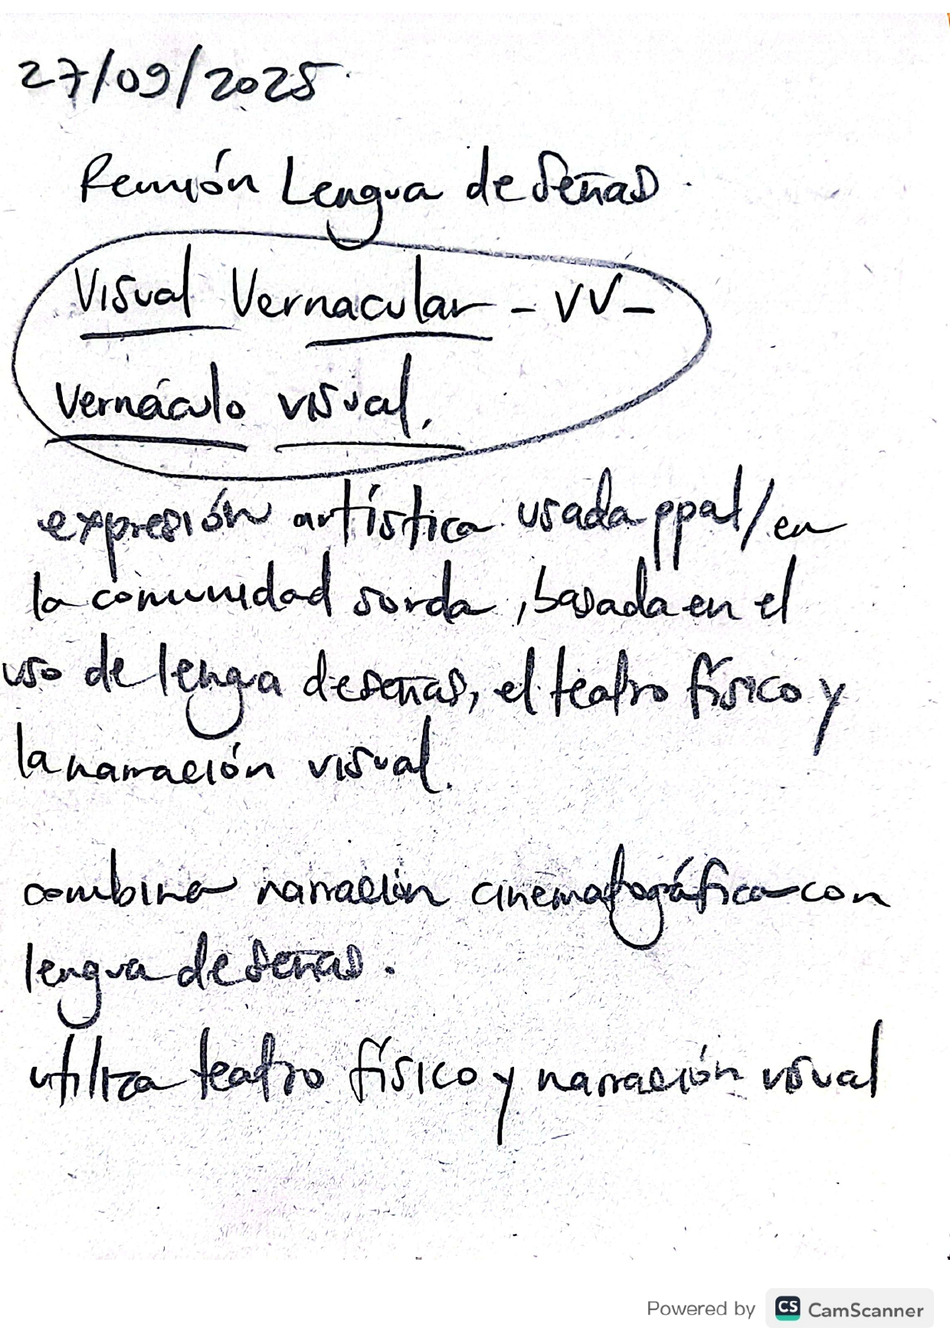 27/09/2025
Reunión Lengua de Señas.
Visual Vernacular - VV -
Vernáculo visual.
expresión artística usada ppal/en
la comunidad sorda, basada en el
uso de lengua de señas, el teatro físico y
la narración visual.
combina narración cinematográfica con
lengua de señas.
utiliza teatro físico y narración visual
Powered by CS CamScanner